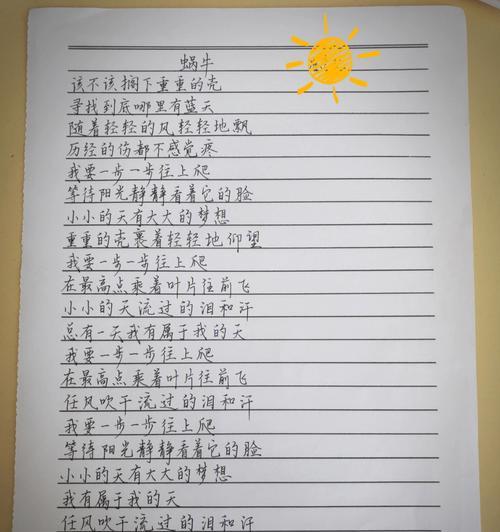 蜗牛
该不该搁下重重的壳
寻找到底哪里有蓝天
随着轻轻的风轻轻地飘
历经的伤都不感觉疼
我要一步一步往上爬
等待阳光静静看着它的脸
小小的天有大大的梦想
重重的壳裹着轻轻地仰望
我要一步一步往上爬
在最高点乘着叶片往前飞
小小的天流过的泪和汗
总有一天我有属于我的天
我要一步一步往上爬
在最高点乘着叶片往前飞
任风吹干流过的泪和汗
我要一步一步往上爬
等待阳光静静看着它的脸
小小的天有大大的梦想
我有属于我的天
任风吹干流过的泪和汗